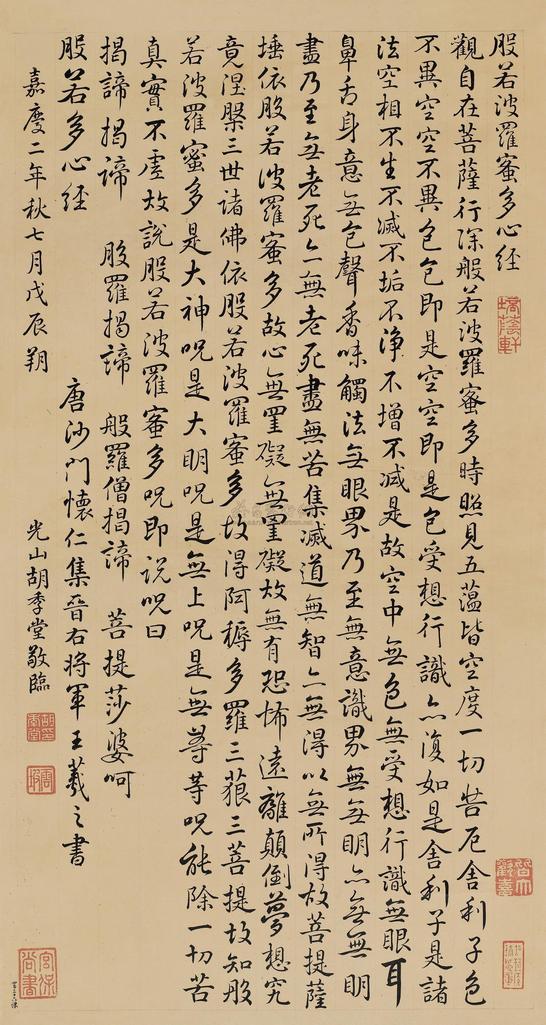 般若波羅蜜多心經
觀自在菩薩行深般若波羅蜜多時照見五蘊皆空度一切苦厄舍利子色
不異空空不異色色即是空空即是色受想行識亦復如是舍利子是諸
法空相不生不滅不垢不淨不增不減是故空中無色無受想行識無眼耳
鼻舌身意無色聲香味觸法無眼界乃至無意識界無無明亦無無明
盡乃至無老死亦無老死盡無苦集滅道無智亦無得以無所得故菩提薩
埵依般若波羅蜜多故心無罣礙無罣礙故無有恐怖遠離顛倒夢想究
竟涅槃三世諸佛依般若波羅蜜多故得阿耨多羅三藐三菩提故知般
若波羅蜜多是大神咒是大明咒是無上咒是無等等咒能除一切苦
真實不虛故說般若波羅蜜多咒即說咒曰
揭諦揭諦 般羅揭諦 般羅僧揭諦 菩提莎婆呵
般若多心經 唐沙門懷仁集晉右將軍王羲之書
嘉慶二年秋七月戊辰朔 光山胡季堂敬臨
宮保尚書